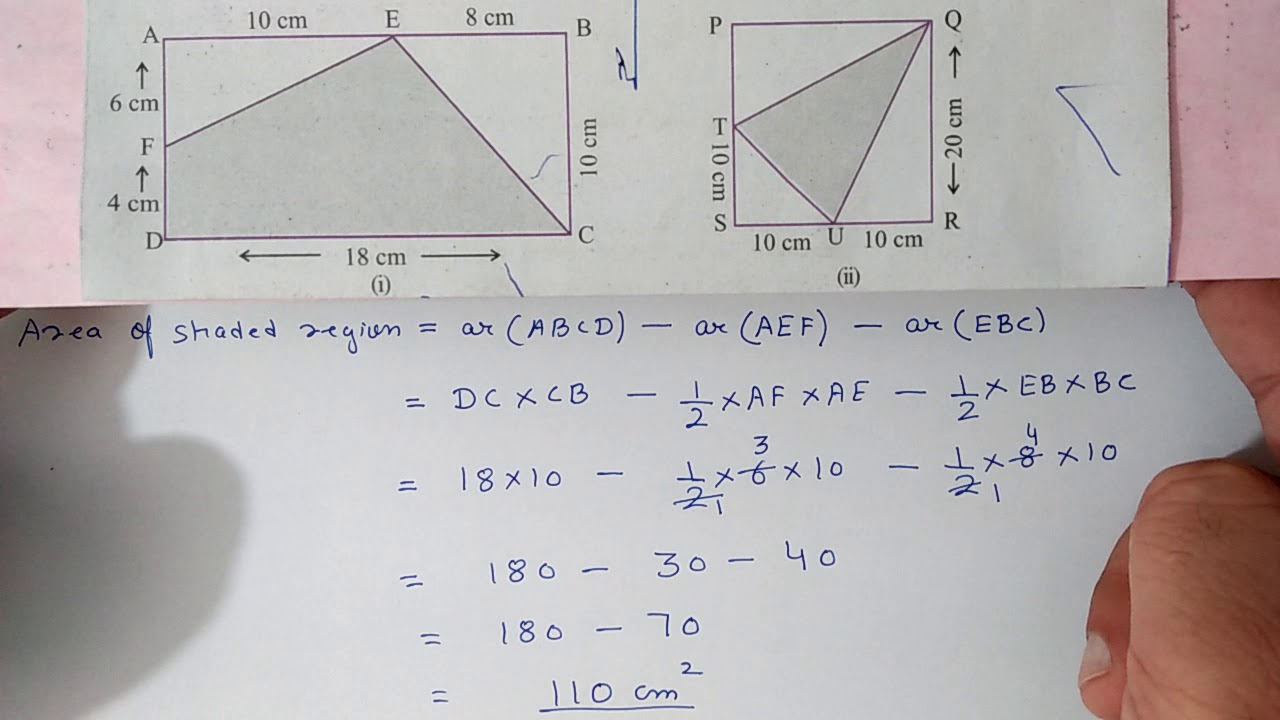 A 10 cm E 8 cm B
6 cm
F
4 cm
D
10 cm
C
18 cm
(i)
P Q
T
10 cm
20 cm
S 10 cm U 10 cm R
(ii)
Area of shaded region = ar (ABCD) — ar (AEF) — ar (EBC)
= DC × CB — 1/2 × AF × AE — 1/2 × EB × BC
3 4
= 18 × 10 — 1/2 × 6 × 10 — 1/2 × 8 × 10
1 1
= 180 — 30 — 40
= 180 — 70
= 110 cm²